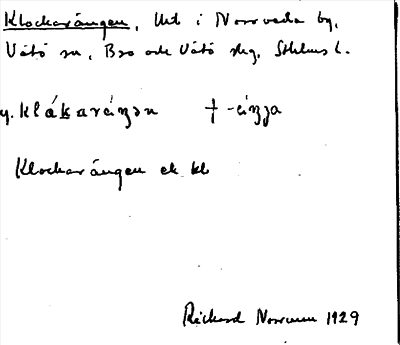 Klockarängen, Utd i Norrveda by,
Vätö sn, Bro och Vätö skg, Sthlms l.
y. klåkaräŋən † -äŋja
Klockarängen ek. kl
Rickard Norrman 1929